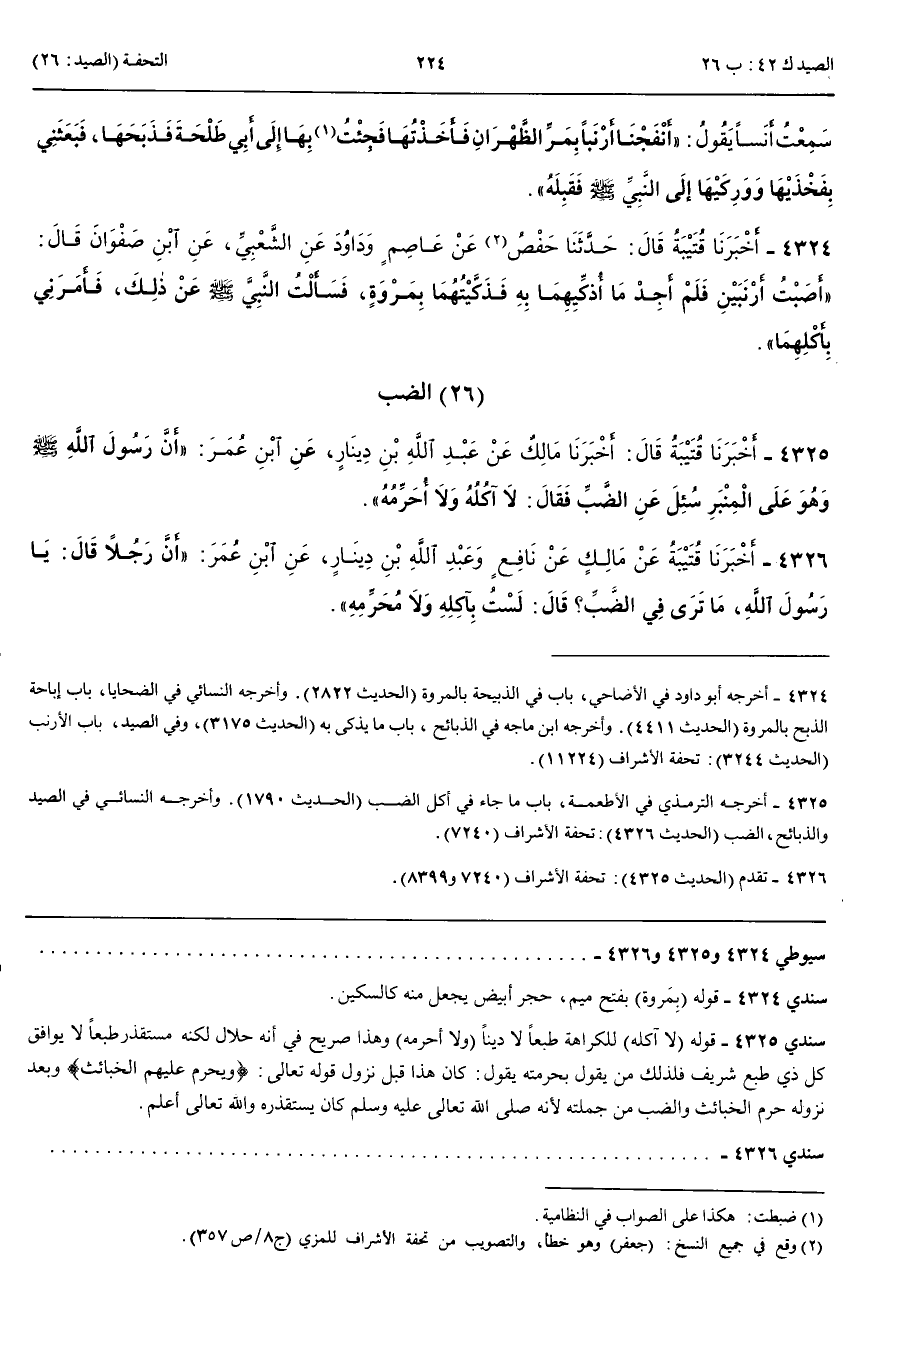 الصيد ك ٤٢: ب ٢٦
٢٢٤
التحفة (الصيد: ٢٦)
سَمِعْتُ أَنَساً يَقُولُ: «أَنْفَجْنَا أَرْنَباً بِمَرِّ الظَّهْرَانِ فَأَخَذْتُهَا فَجِئْتُ(١) بِهَا إِلَى أَبِي طَلْحَةَ فَذَبَحَهَا، فَبَعَثَنِي
بِفَخْذَيْهَا وَوَرِكَيْهَا إِلَى النَّبِيِّ ﷺ فَقَبِلَهُ».
٤٣٢٤ ـ أَخْبَرَنَا قُتَيْبَةُ قَالَ: حَدَّثَنَا حَفْصُ(٢) عَنْ عَاصِمٍ وَدَاوُدَ عَنِ الشَّعْبِيِّ، عَنِ ٱبْنِ صَفْوَانَ قَالَ:
«أَصَبْتُ أَرْنَبَيْنِ فَلَمْ أَجِدْ مَا أُذَكِّيهِمَا بِهِ فَذَكَّيْتُهُمَا بِمَرْوَةٍ، فَسَأَلْتُ النَّبِيَّ ﷺ عَنْ ذٰلِكَ، فَأَمَرَنِي
بِأَكْلِهِمَا».
(٢٦) الضب
٤٣٢٥ ـ أَخْبَرَنَا قُتَيْبَةُ قَالَ: أَخْبَرَنَا مَالِكٌ عَنْ عَبْدِ ٱللَّهِ بْنِ دِينَارٍ، عَنِ ٱبْنِ عُمَرَ: «أَنَّ رَسُولَ ٱللَّهِ ﷺ
وَهُوَ عَلَى الْمِنْبَرِ سُئِلَ عَنِ الضَّبِّ فَقَالَ: لَا آكُلُهُ وَلَا أُحَرِّمُهُ».
٤٣٢٦ ـ أَخْبَرَنَا قُتَيْبَةُ عَنْ مَالِكٍ عَنْ نَافِعٍ وَعَبْدِ ٱللَّهِ بْنِ دِينَارٍ، عَنِ ٱبْنِ عُمَرَ: «أَنَّ رَجُلًا قَالَ: يَا
رَسُولَ ٱللَّهِ، مَا تَرَى فِي الضَّبِّ؟ قَالَ: لَسْتُ بِآكِلِهِ وَلَا مُحَرِّمِهِ».
٤٣٢٤ ـ أخرجه أبو داود في الأضاحي، باب في الذبيحة بالمروة (الحديث ٢٨٢٢). وأخرجه النسائي في الضحايا، باب إباحة
الذبح بالمروة (الحديث ٤٤١١). وأخرجه ابن ماجه في الذبائح ، باب ما يذكى به (الحديث ٣١٧٥)، وفي الصيد، باب الأرنب
(الحديث ٣٢٤٤): تحفة الأشراف (١١٢٢٤).
٤٣٢٥ ـ أخرجه الترمذي في الأطعمة، باب ما جاء في أكل الضب (الحديث ١٧٩٠). وأخرجه النسائي في الصيد
والذبائح، الضب (الحديث ٤٣٢٦): تحفة الأشراف (٧٢٤٠).
٤٣٢٦ ـ تقدم (الحديث ٤٣٢٥): تحفة الأشراف (٧٢٤٠ و٨٣٩٩).
سيوطي ٤٣٢٤ و٤٣٢٥ و٤٣٢٦ ـ . . . . . . . . . . . . . . . . . . . . . . . . . . . . . . . . . . . . . . . . . . . . . . .
سندي ٤٣٢٤ ـ قوله (بِمَروة) بفتح ميم، حجر أبيض يجعل منه كالسكين.
سندي ٤٣٢٥ ـ قوله (لا آكله) للكراهة طبعاً لا ديناً (ولا أحرمه) وهذا صريح في أنه حلال لكنه مستقذر طبعاً لا يوافق
كل ذي طبع شريف فلذلك من يقول بحرمته يقول: كان هذا قبل نزول قوله تعالى: ﴿ويحرم عليهم الخبائث﴾ وبعد
نزوله حرم الخبائث والضب من جملته لأنه صلى الله تعالى عليه وسلم كان يستقذره والله تعالى أعلم.
سندي ٤٣٢٦ ـ . . . . . . . . . . . . . . . . . . . . . . . . . . . . . . . . . . . . . . . . . . . . . . . . . . . . . . . .
(١) ضبطت: هكذا على الصواب في النظامية.
(٢) وقع في جميع النسخ: (جعفر) وهو خطأ، والتصويب من تحفة الأشراف للمزي (ج٨/ ص ٣٥٧).